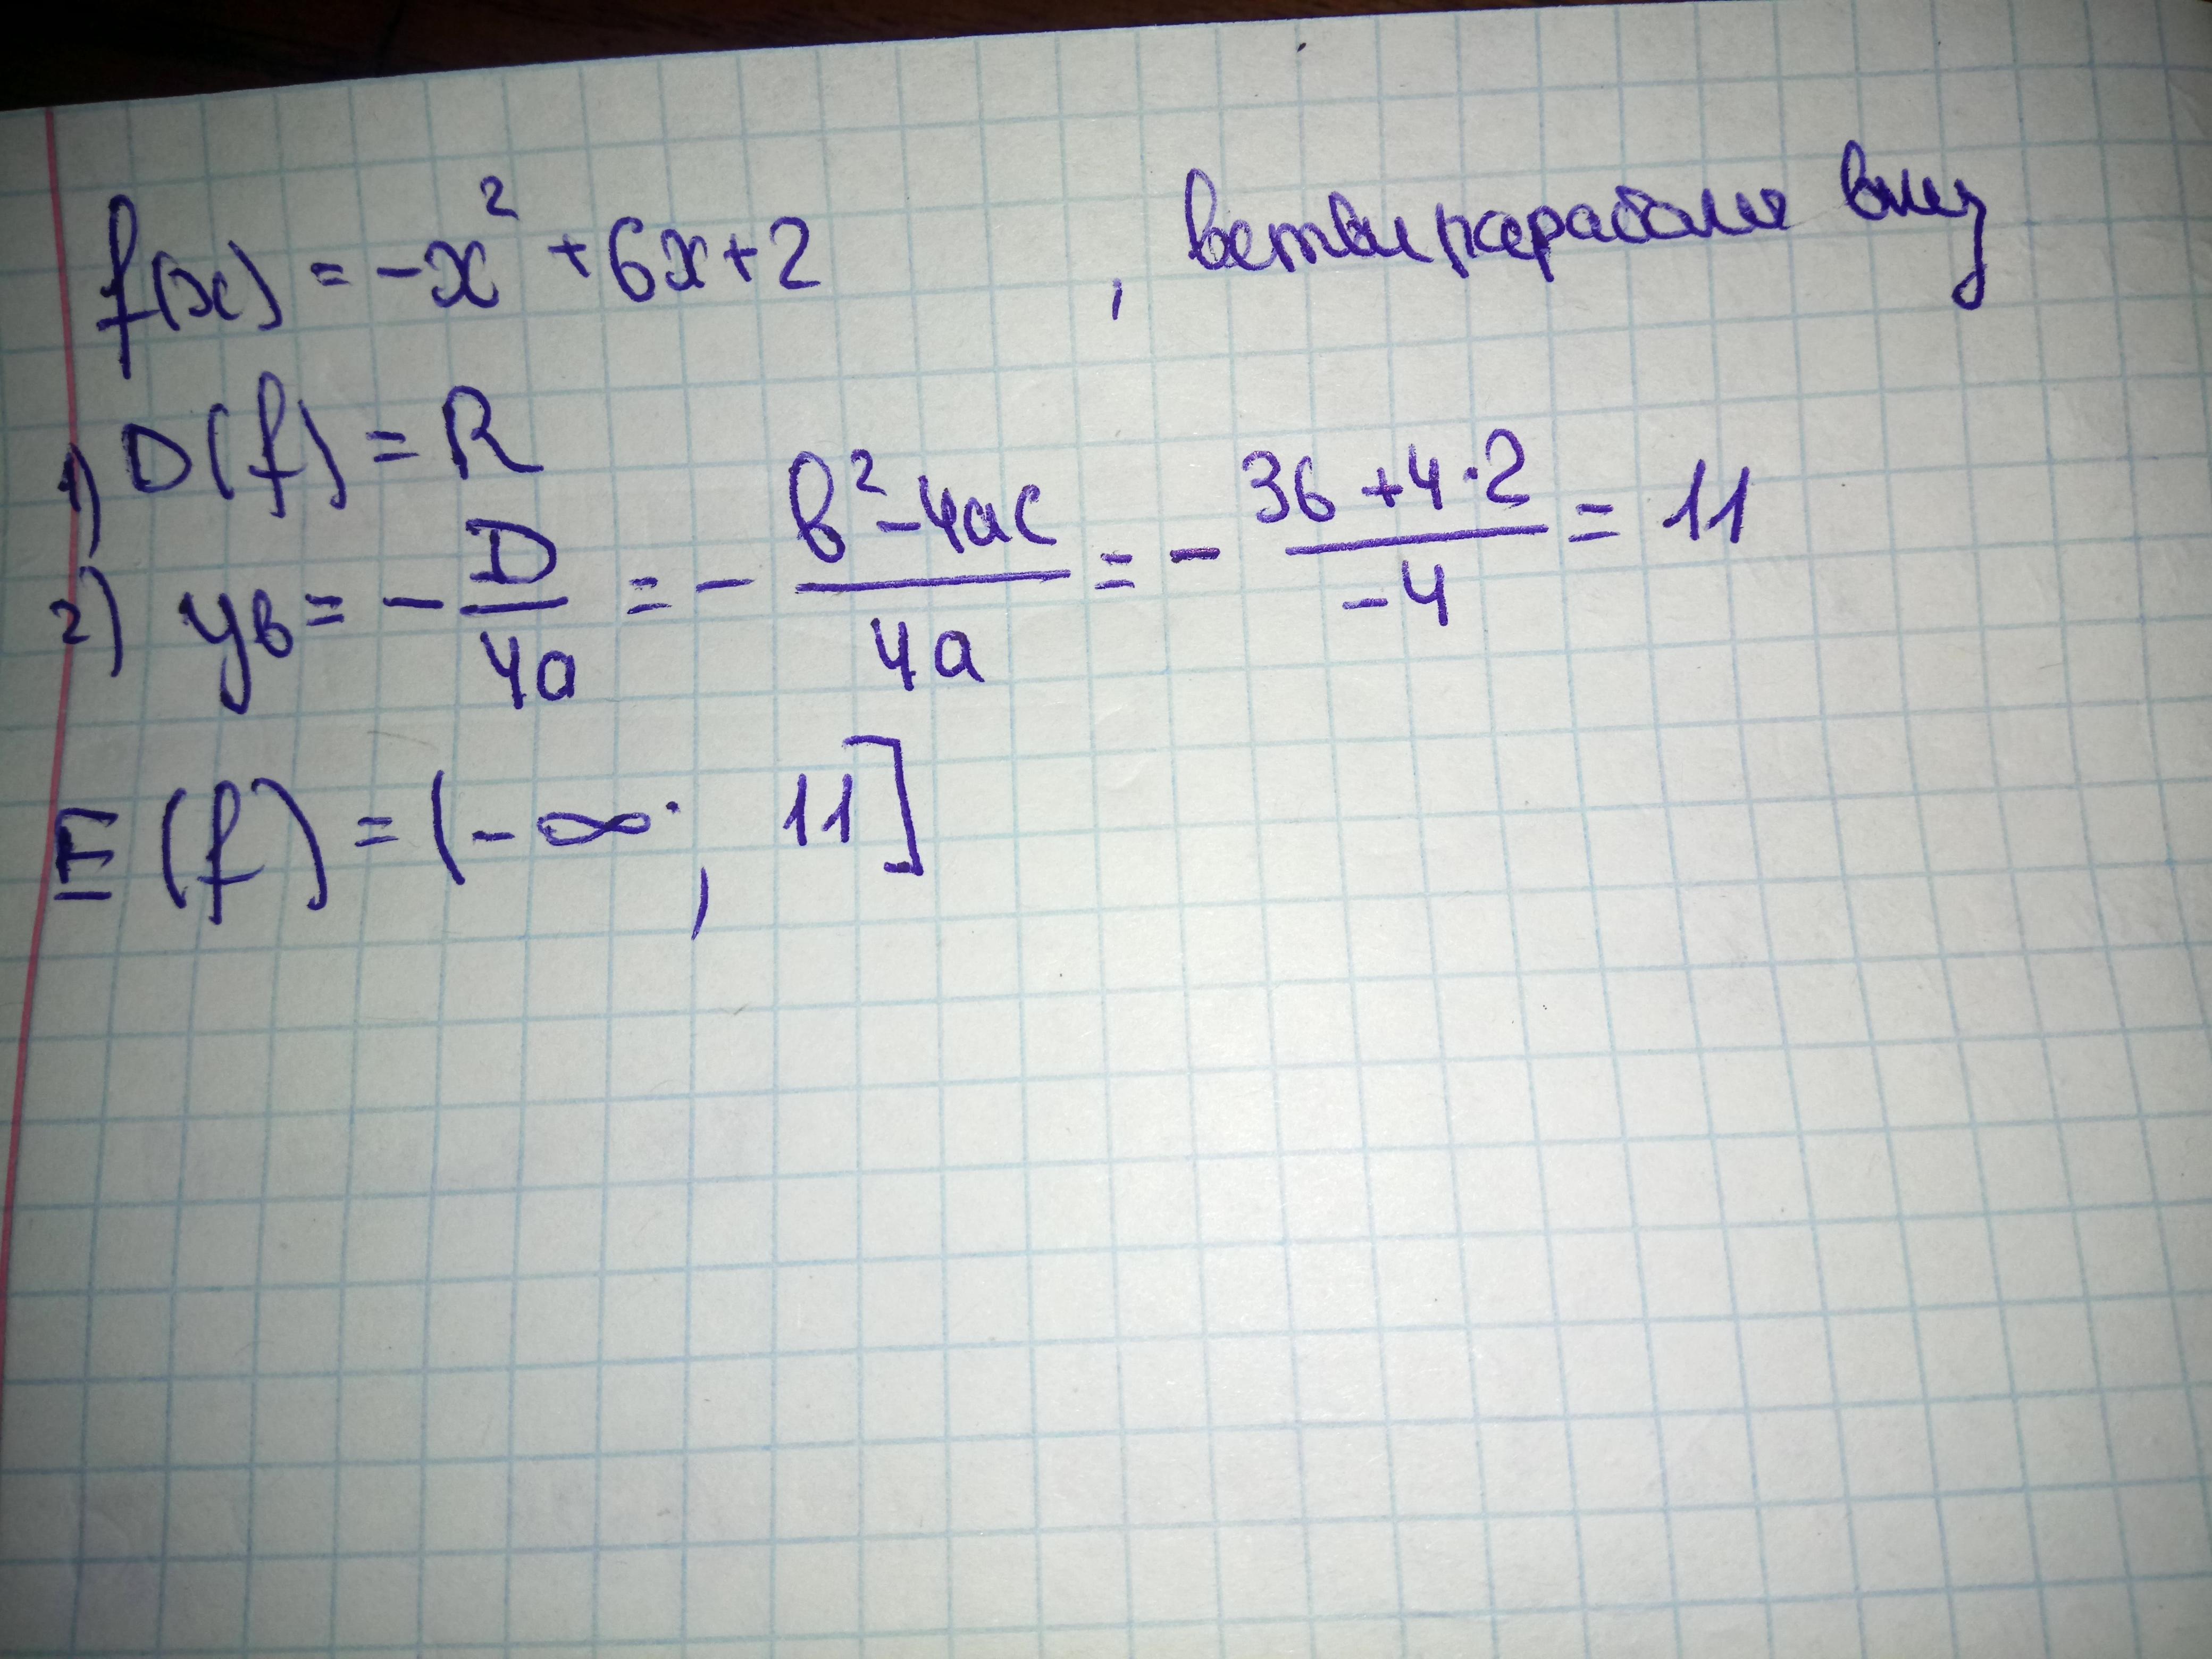 f(x) = -x² + 6x + 2 , ветви параболы вниз
1) D(f) = R
2) yв = - D/4a = - в² - 4ac/4a = - 36 + 4·2/-4 = 11
E(f) = (-∞; 11]